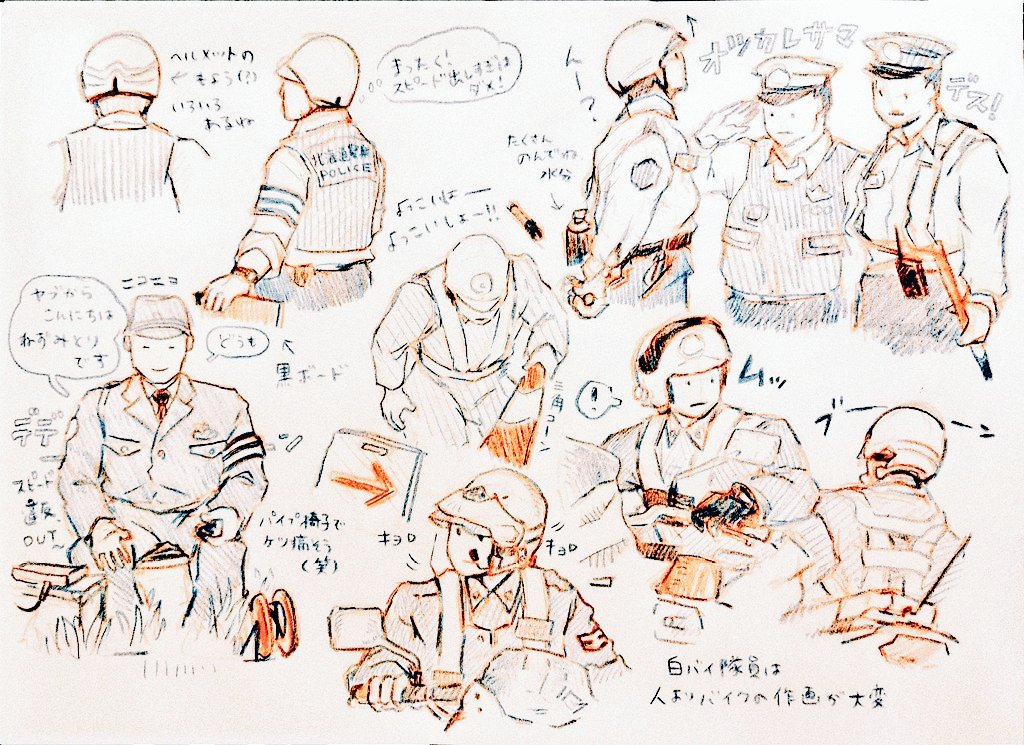 ヘルメットの
もよう(?)
いろいろ
あるね
まったく!
スピード出しすぎは
ダメ!
北海道警察
POLICE
んー?
オツカレサマ
デス!
たくさん
のんでね
水分
よっこいしょー
よっこいしょー!!
ヤブから
こんにちは
ねずみとり
です
ニコニコ
どうも
黒ボード
三角コーン
!
ムッ
ブーーン
スピード
違反
OUT~
パイプ椅子で
ケツ痛そう
(笑)
キョロ
キョロ
白バイ隊員は
人よりバイクの作画が大変